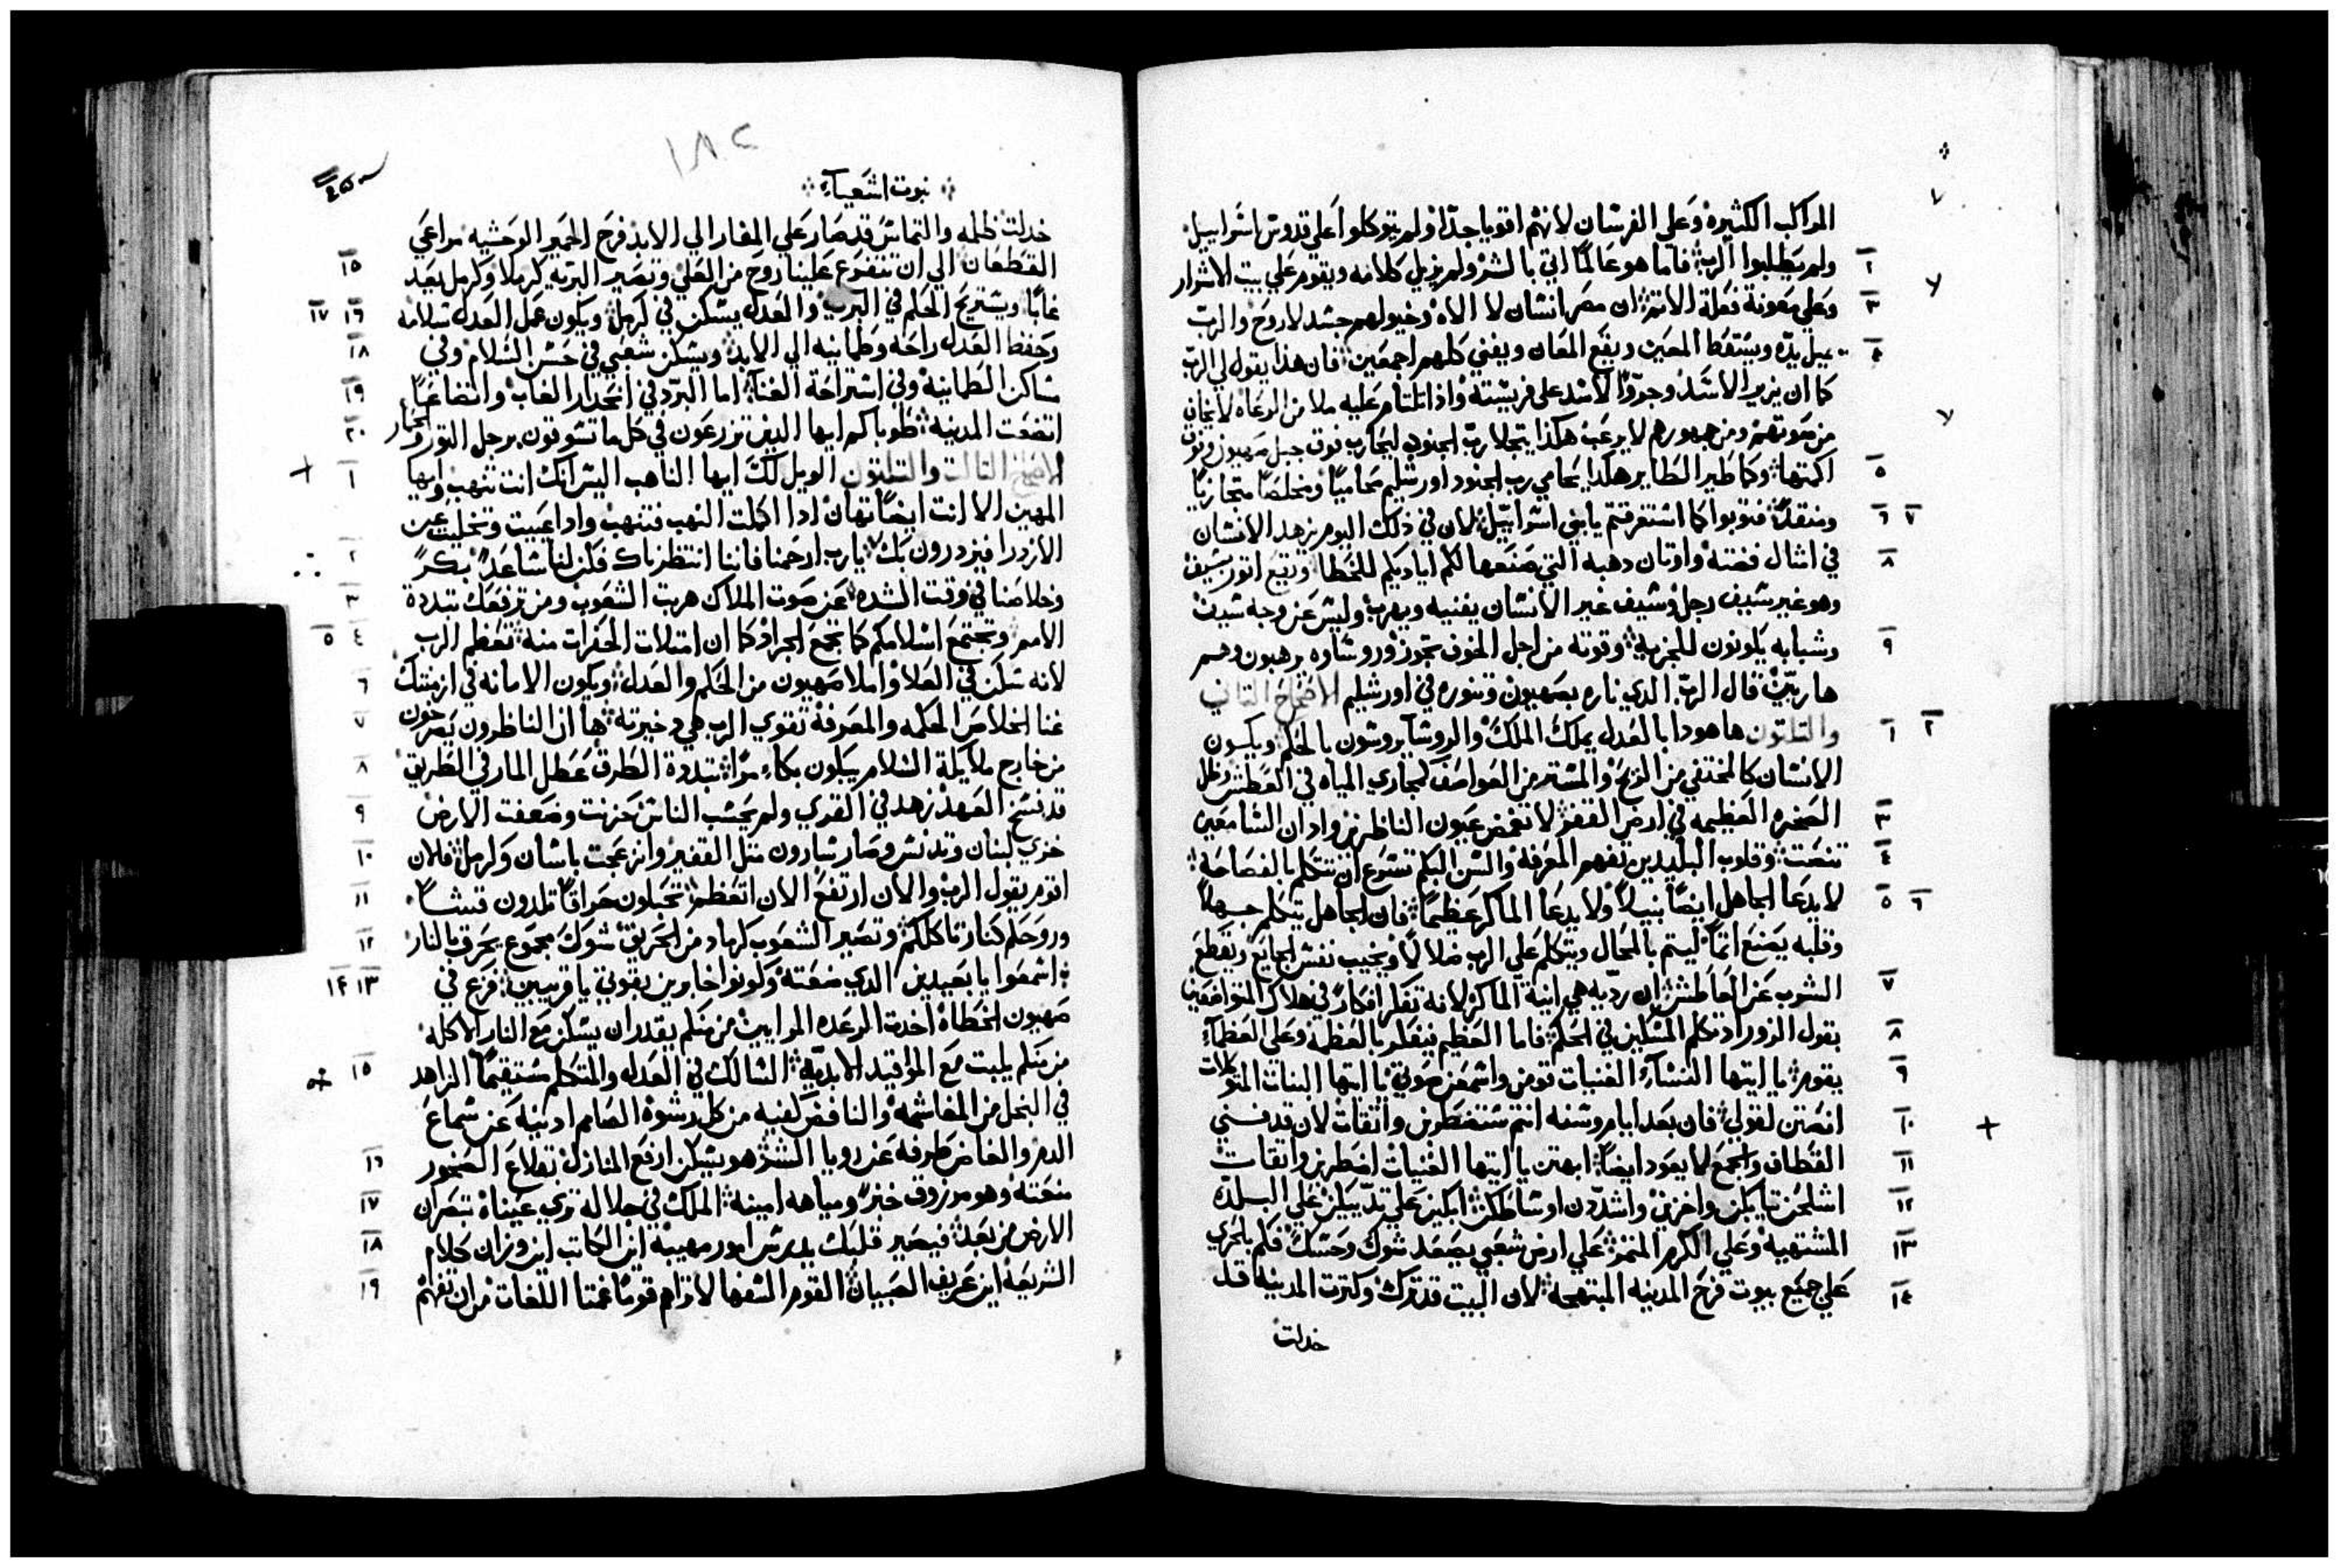 المراكب الكثيرة وعلي الفرسان لانهم اقويا جدا ولم يتوكلوا علي قدوس اسراييل
ولم يطلبوا الرب فاما هو عالما اتي بالشر ولم يزيل كلامه ويقوم علي بيت الاشرار
وعلي معونة فعلة الاثم ان مصر انسان لا الاه وخيولهم جسد لا روح والرب
يميل يده ويسقط المعين ويقع المعان ويفني كلهم اجمعين فان هذا يقول لي الرب
كما ان يزير الاسد وجرو الاسد علي فريسته واذا تلتام عليه ملا من الرعاه لا يخاف
من صوتهم ومن جمهورهم لا يرعب هكذا يتجلا رب الجنود ليحارب فوق جبل صهيون وفوق
اكمتها وكما طير الطاير هكذا يحامي رب الجنود اورشليم محاميا ومخلصا متجازيا
ومنقذا فتوبوا كما استغرقتم يا بني اسراييل لان في ذلك اليوم يزهد الانسان
في امثال فضته واوتان دهبه التي صنعها لكم اياديكم للخطا ويقع اتور بسيف
وهو غير سيف رجل وسيف غير الانسان يفنيه ويهرب وليس عن وجه سيف
وشبابه يكونون للجزية وقوته من اجل الخوف تجوز وروساوه يرهبون وهم
هاربين قال الرب الدي ناره بصهيون وتنوره في اورشليم الاصحاح التاني
والتلتون ها هودا بالعدل يملك الملك والروسا يروسون بالحكم ويكون
الانسان كالمختفي من الريح والمستتر من العواصف كمجاري المياه في العطش وظل
الصخره العظيمه في ارض القفر لا تغمض عيون الناظرين وادان السامعين
تنصت وقلوب البليدين تفهم المعرفة والسن البكم تسرع ان تتكلم بالفصاحة
لا يدعا الجاهل ايضا نبيلا ولا يدعا الماكر عظيما فان الجاهل يتكلم جهلا
وقلبه يصنع اتما ليتم بالمحال ويتكلم علي الرب ضلالا ويخيب نفس الجايع ويقطع
الشوب عن العاطش ان رديه هي انية الماكر لانه تفكر افكار في هلاك المتواضعين
بقول الزور اد تكلم المسكين في الحكم فاما العظيم فيفكر بالعظمة وعلي العظما
يقوم يا ايتها النساء الغنيات قومن واسمعن صوتي يا ايتها البنات المتوكلات
انصتن لقولي فان بعد ايام وسنه انتم ستضطربن واتقات لان قد فني
القطاف والجمع لا يعود ايضا ابهتن يا ايتها الغنيات اضطربن واتقات
اشلحن تيابكن واخزين واشددن اوساطكن ابكين علي تدييكن علي البلدة
المشتهية وعلي الكرم المتمر علي ارض شعبي يصعد شوك وحسك فكم بالحري
علي جميع بيوت فرح المدينه المبتهجه لان البيت قد ترك وكترت المدينه قد
خدلت
نبوت اشعياء
خدلت ظلمه والتماس قد صار علي المغار الي الابد فرح الحمير الوحشيه مراعي
القطعان الي ان تنفرع علينا روح من العلي وتصير البريه كرملا وكرمل يعد
غابا ويستريح الحكم في البرية والعدل يسكن في كرمل ويكون عمل العدل سلامه
وحفظ العدل راحه وطمانيه الي الابد ويسكن شعبي في حسن السلام وفي
مساكن الطمانينه وفي استراحة الغناء اما البرد في انحدار الغاب واتضاعا
اتضعت المدينه طوباكم ايها الدين تزرعون في كل ما تسوقون برجل التور والحمار
الاصحاح التالت والتلتون الويل لك ايها الناهب اليس انك انت تنهب وايها
المهين الا انت ايضا تهان ادا اكملت النهب فتنهب وادا عييت وتخليت عن
الازدرا فيزدرون بك يارب ارحمنا فاننا انتظرناك فكن لنا ساعدا بكرا
وخلاصنا في وقت الشده عن صوت الملاك هربت الشعوب ومن ترفعك تبددة
الامم وتجتمع اسلابكم كما تجمع الجراد كما ان امتلات الحفرات منه تعظم الرب
لانه سكن في العلا واملا صهيون من الحكم والعدل ويكون الامانه في ازمنتك
غنا الخلاص الحكمه والمعرفة تقوي الرب هي دخيرته ها ان الناظرون يصرخون
من خارج ملايكة السلام يبكون بكاء مرا تبددة الطرق عطل المار في الطريق
قد نسخ العهد زهد في القري ولم يحسب الناس حزنت وضعفت الارض
خزي لبنان وتدنس وصار سارون متل القفير وانزعجت باسان وكرمل فلان
اقوم يقول الرب والان ارتفع الان اتعظم تحبلون حراقا تلدون قشا
وروحكم كنار تاكلكم وتصير الشعوب كرماد من الحريق شوك مجموع يحرق بالنار
اسمعوا يا بعيدين الدي صنعته وكونوا خابرين بقوتي يا قريبين فزع في
صهيون الخطاة اخدت الرعده المرايين من منكم يقدر ان يسكن مع النار الاكله
من منكم يلبت مع المواقيد الابدية السالك في العدل والمتكلم مستقيما الزاهد
في البخل من المغاشمه والنافض كفيه من كل رشوة الصامم ادنيه عن سماع
الدم والغامض طرفه عن رويا الشر هو يسكن ارفع المنازل بقلاع الصخور
منعته وهو مرزوق خبز ومياهه امينه الملك في جلاله تري عيناه تبصران
الارض من بعد فيصير قلبك يدرس امور مهيبه اين الكاتب اين وزان كلام
الشريعه اين عريف الصبيان القوم السفها لا تراهم قوما غمتا اللغات من ان تفهم